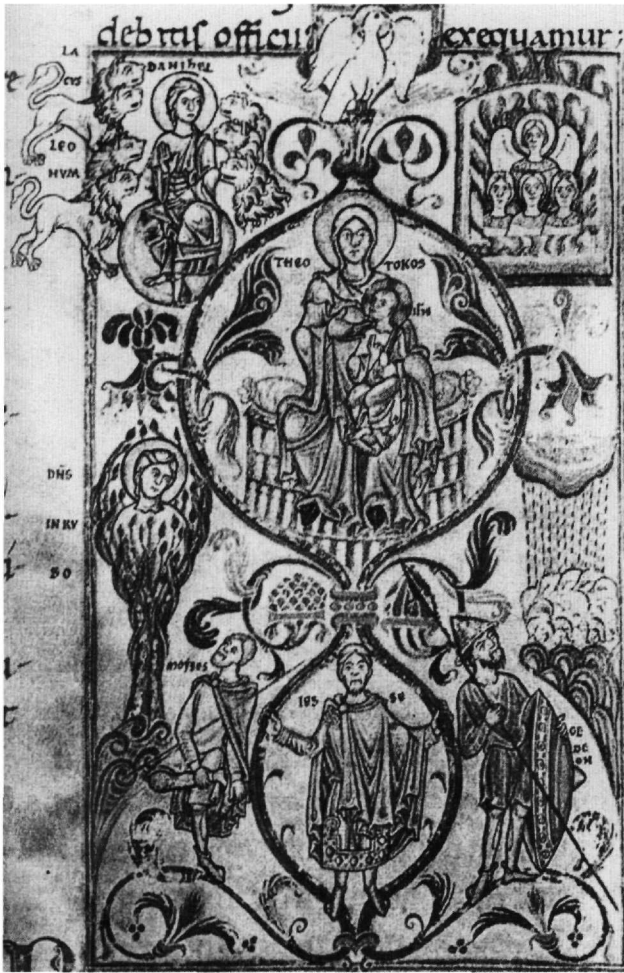 debitis officiis exequamur;
LA
CUS
LEO
NUM
DANIHEL
THEO TOKOS
DÑS
IN RU
BO
MOYSES
IES SE
GE
DE
ON